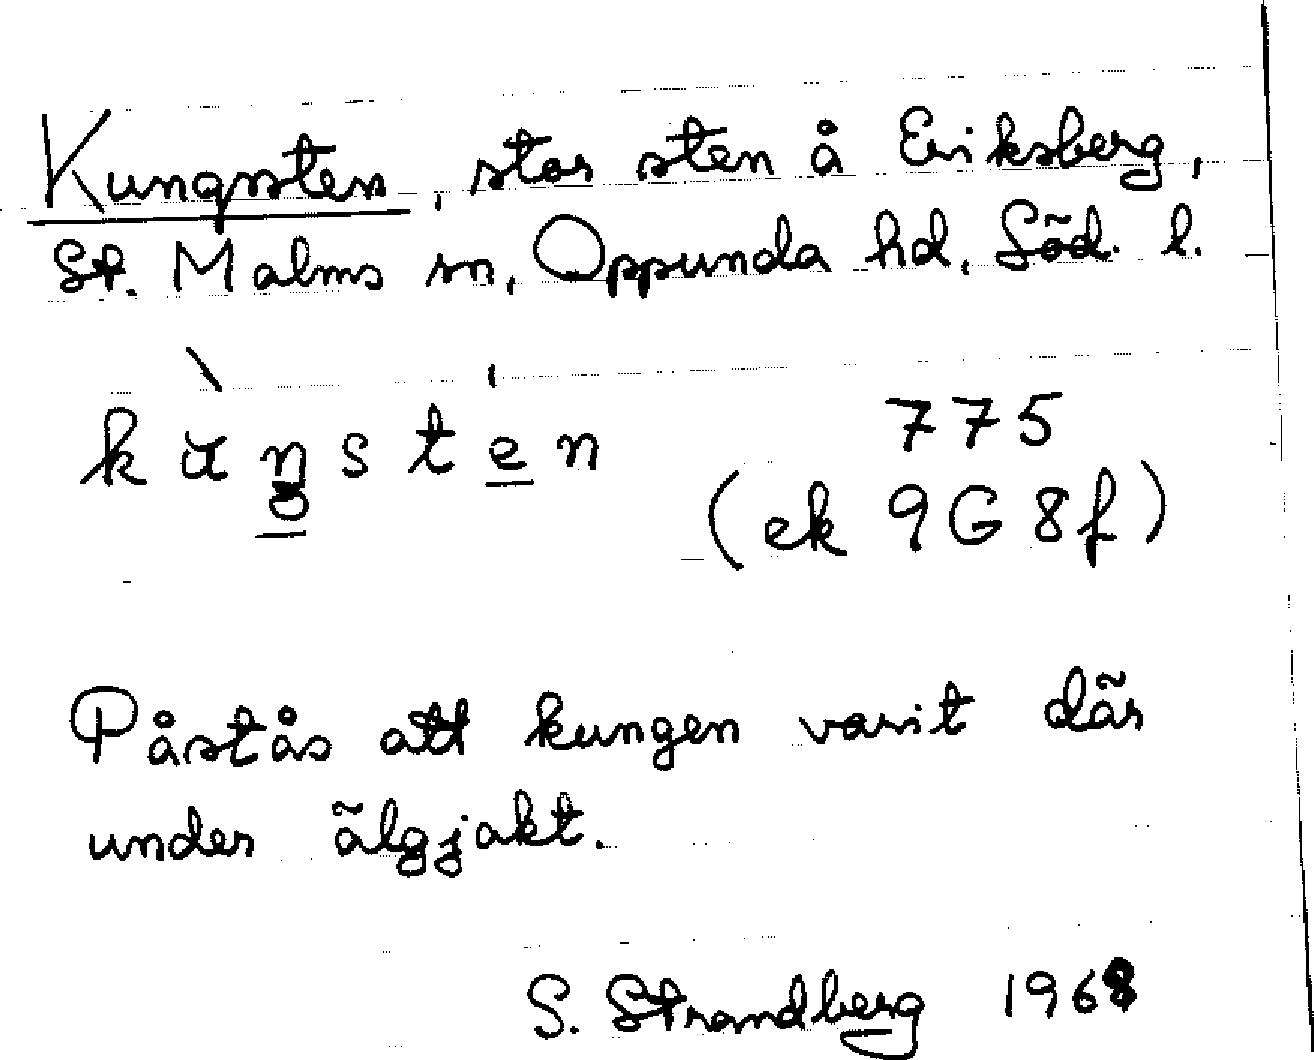 Kungsten, stor sten å Eriksberg,
St. Malms sn, Oppunda hd, Söd. l.
775
(ek 9G8f)
Påstås att kungen varit där
under älgjakt.
S. Strandberg 1968